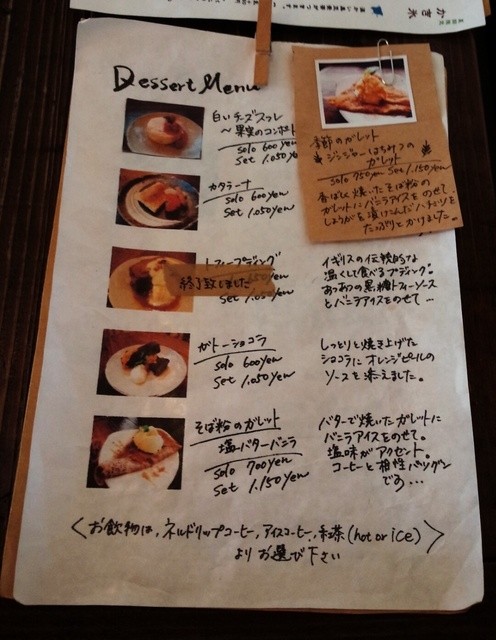 かき氷
Dessert Menu
白いチーズスフレ
〜果実のコンポート
solo 600yen
set 1.050yen
カタラーナ
solo 600yen
set 1.050yen
トフィープディング
終了致しました
set 1.050yen
イギリスの伝統的な
温くして食べるプディング。
あつあつの黒糖トフィーソース
とバニラアイスをのせて…
ガトーショコラ
solo 600yen
set 1.050yen
しっとりと焼き上げた
ショコラにオレンジピールの
ソースを添えました。
そば粉のガレット
塩バターバニラ
solo 700yen
set 1.150yen
バターで焼いたガレットに
バニラアイスをのせて。
塩味がアクセント。
コーヒーと相性バツグン
です…
季節のガレット
ジンジャーはちみつの
ガレット
solo 750yen set 1.150yen
香ばしく焼いたそば粉の
ガレットにバニラアイスをのせて、
しょうがを漬けこんだハチミツを
たっぷりとかけました。
〈お飲物は、ネルドリップコーヒー、アイスコーヒー、紅茶(hot or ice)〉
よりお選び下さい